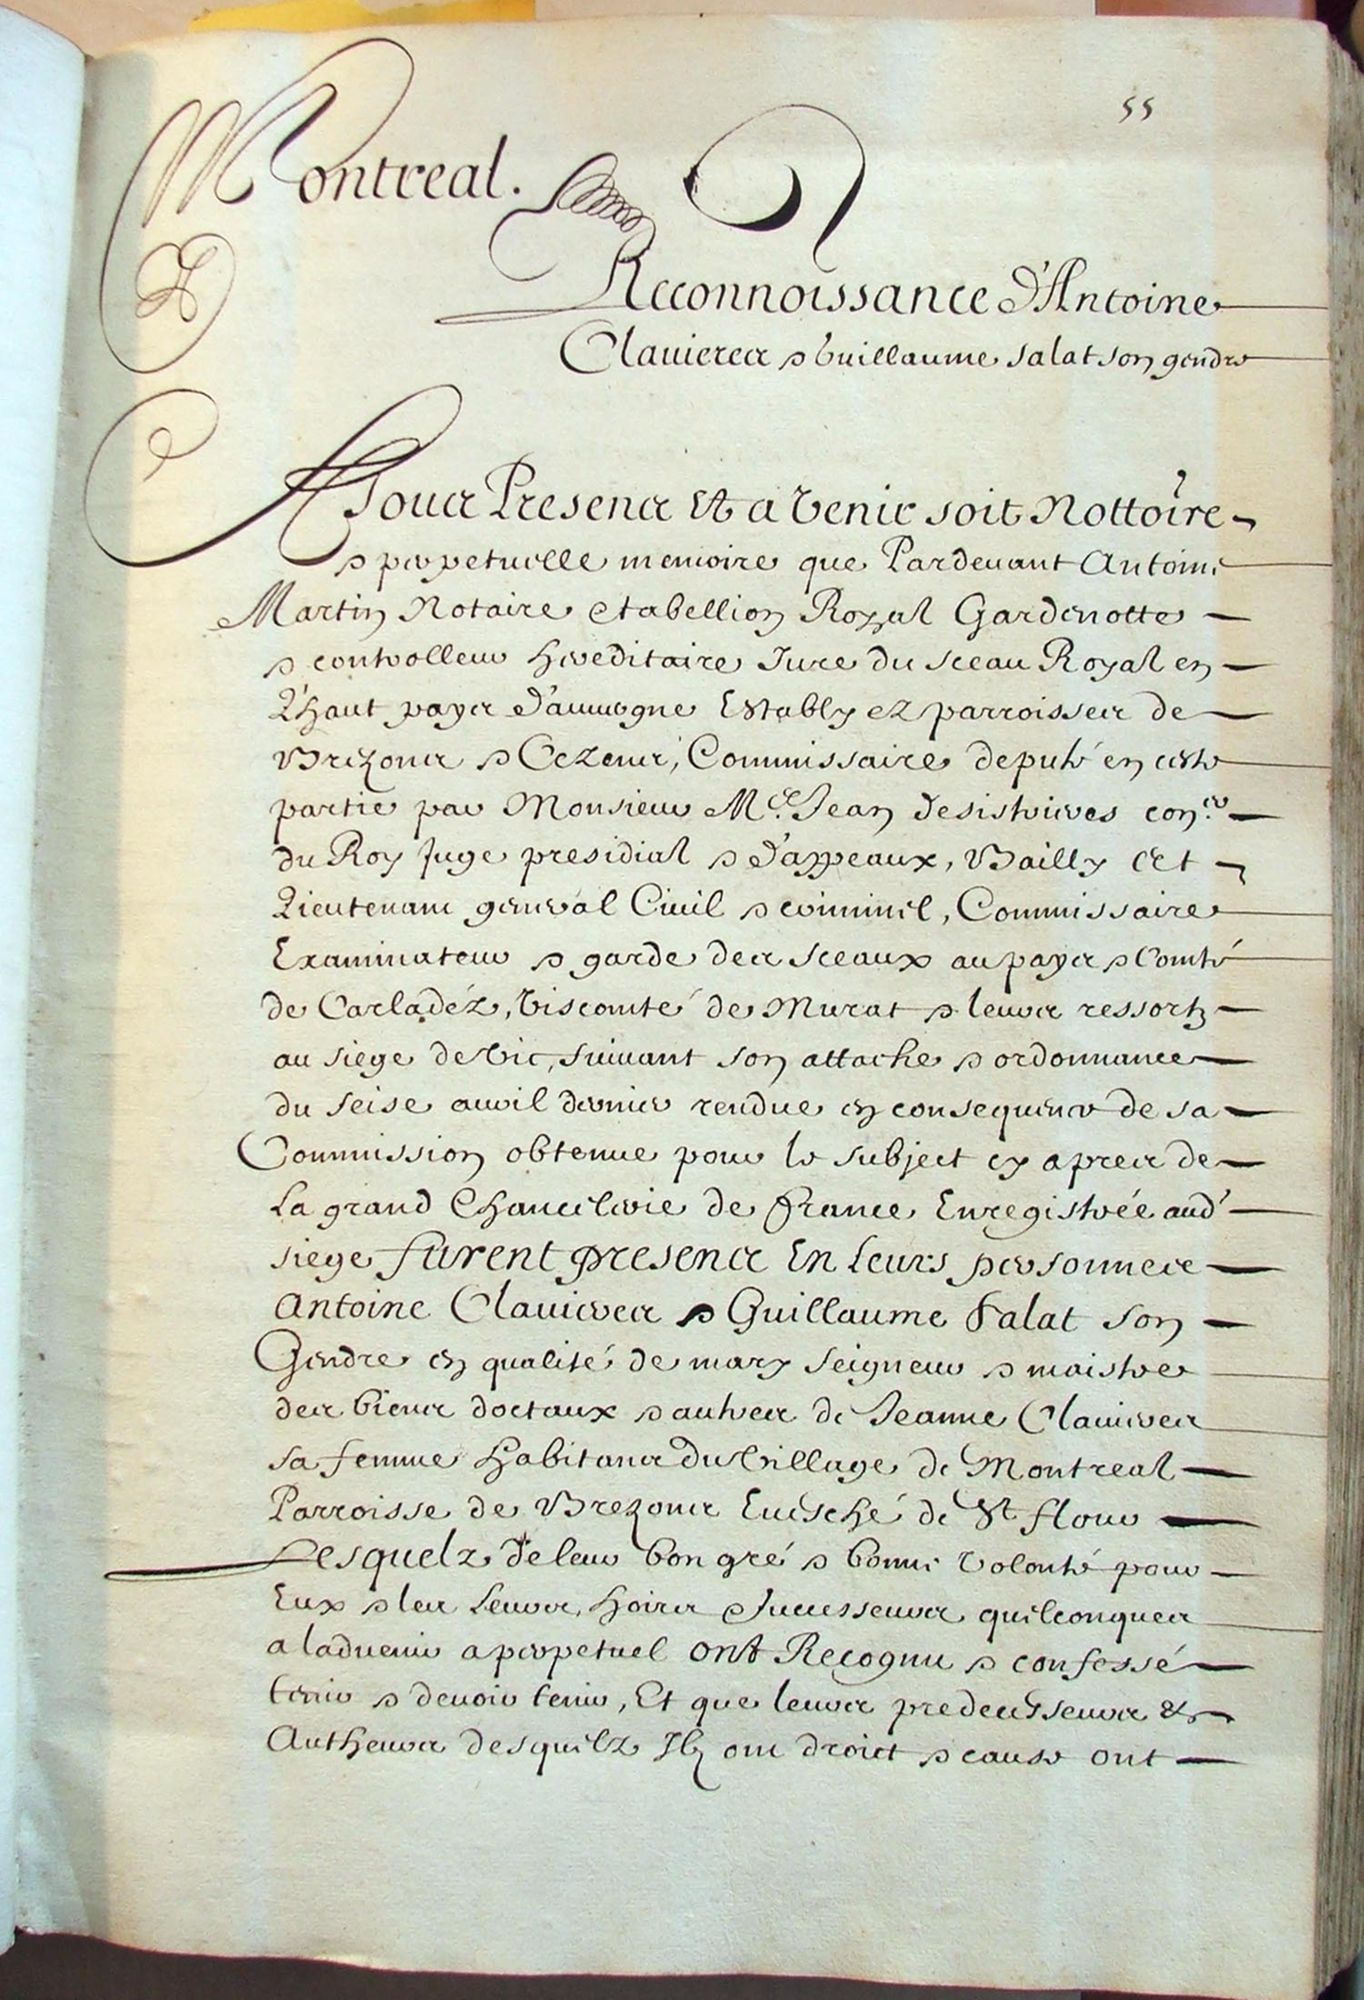 55
Montreal.
Reconnoissance d'Antoine
Clavieres & Guillaume Salat son gendre
A Tous Presens Et a Venir soit Nottoire
& perpetuelle memoire que Pardevant Antoine
Martin Notaire & tabellion Royal Gardenotte
& controlleur hereditaire Juré du sceau Royal en
L'haut payes d'auvergne Estably ez parroisses de
Brezons & Cezens, Commissaire deputé en ceste
partie par Monsieur Me. Jean desistrieres con.er
du Roy Juge presidial & d'appeaux, Bailly & et
Lieutenant general Civil & criminel, Commissaire
Examinateur & garde des sceaux au payes & Comté
de Carladéz, Viscomté de Murat & leurs ressortz
au siege de Vic, suivant son attache & ordonnance
du seise avril dernier rendue en consequence de sa
Commission obtenue pour le subject cy apres de
La grand Chancelerie de france Enregistrée aud'
siege furent presens En Leurs personnes
Antoine Clavieres & Guillaume Salat son
Gendre en qualité de mary seigneur & maistre
des biens doctaux & autres de Jeanne Clavieres
sa femme habitans du Village de Montreal
Parroisse de Brezons Evesché de St flour
Lesquelz de leur bon gré & bonne volonté pour
Eux & les Leurs, hoirs & successeurs quelconques
a ladvenir a perpetuel ont Recognu & confessé
tenir & devoir tenir, Et que leurs predecesseurs &
Autheurs desquelz Ilz ont droict & cause ont